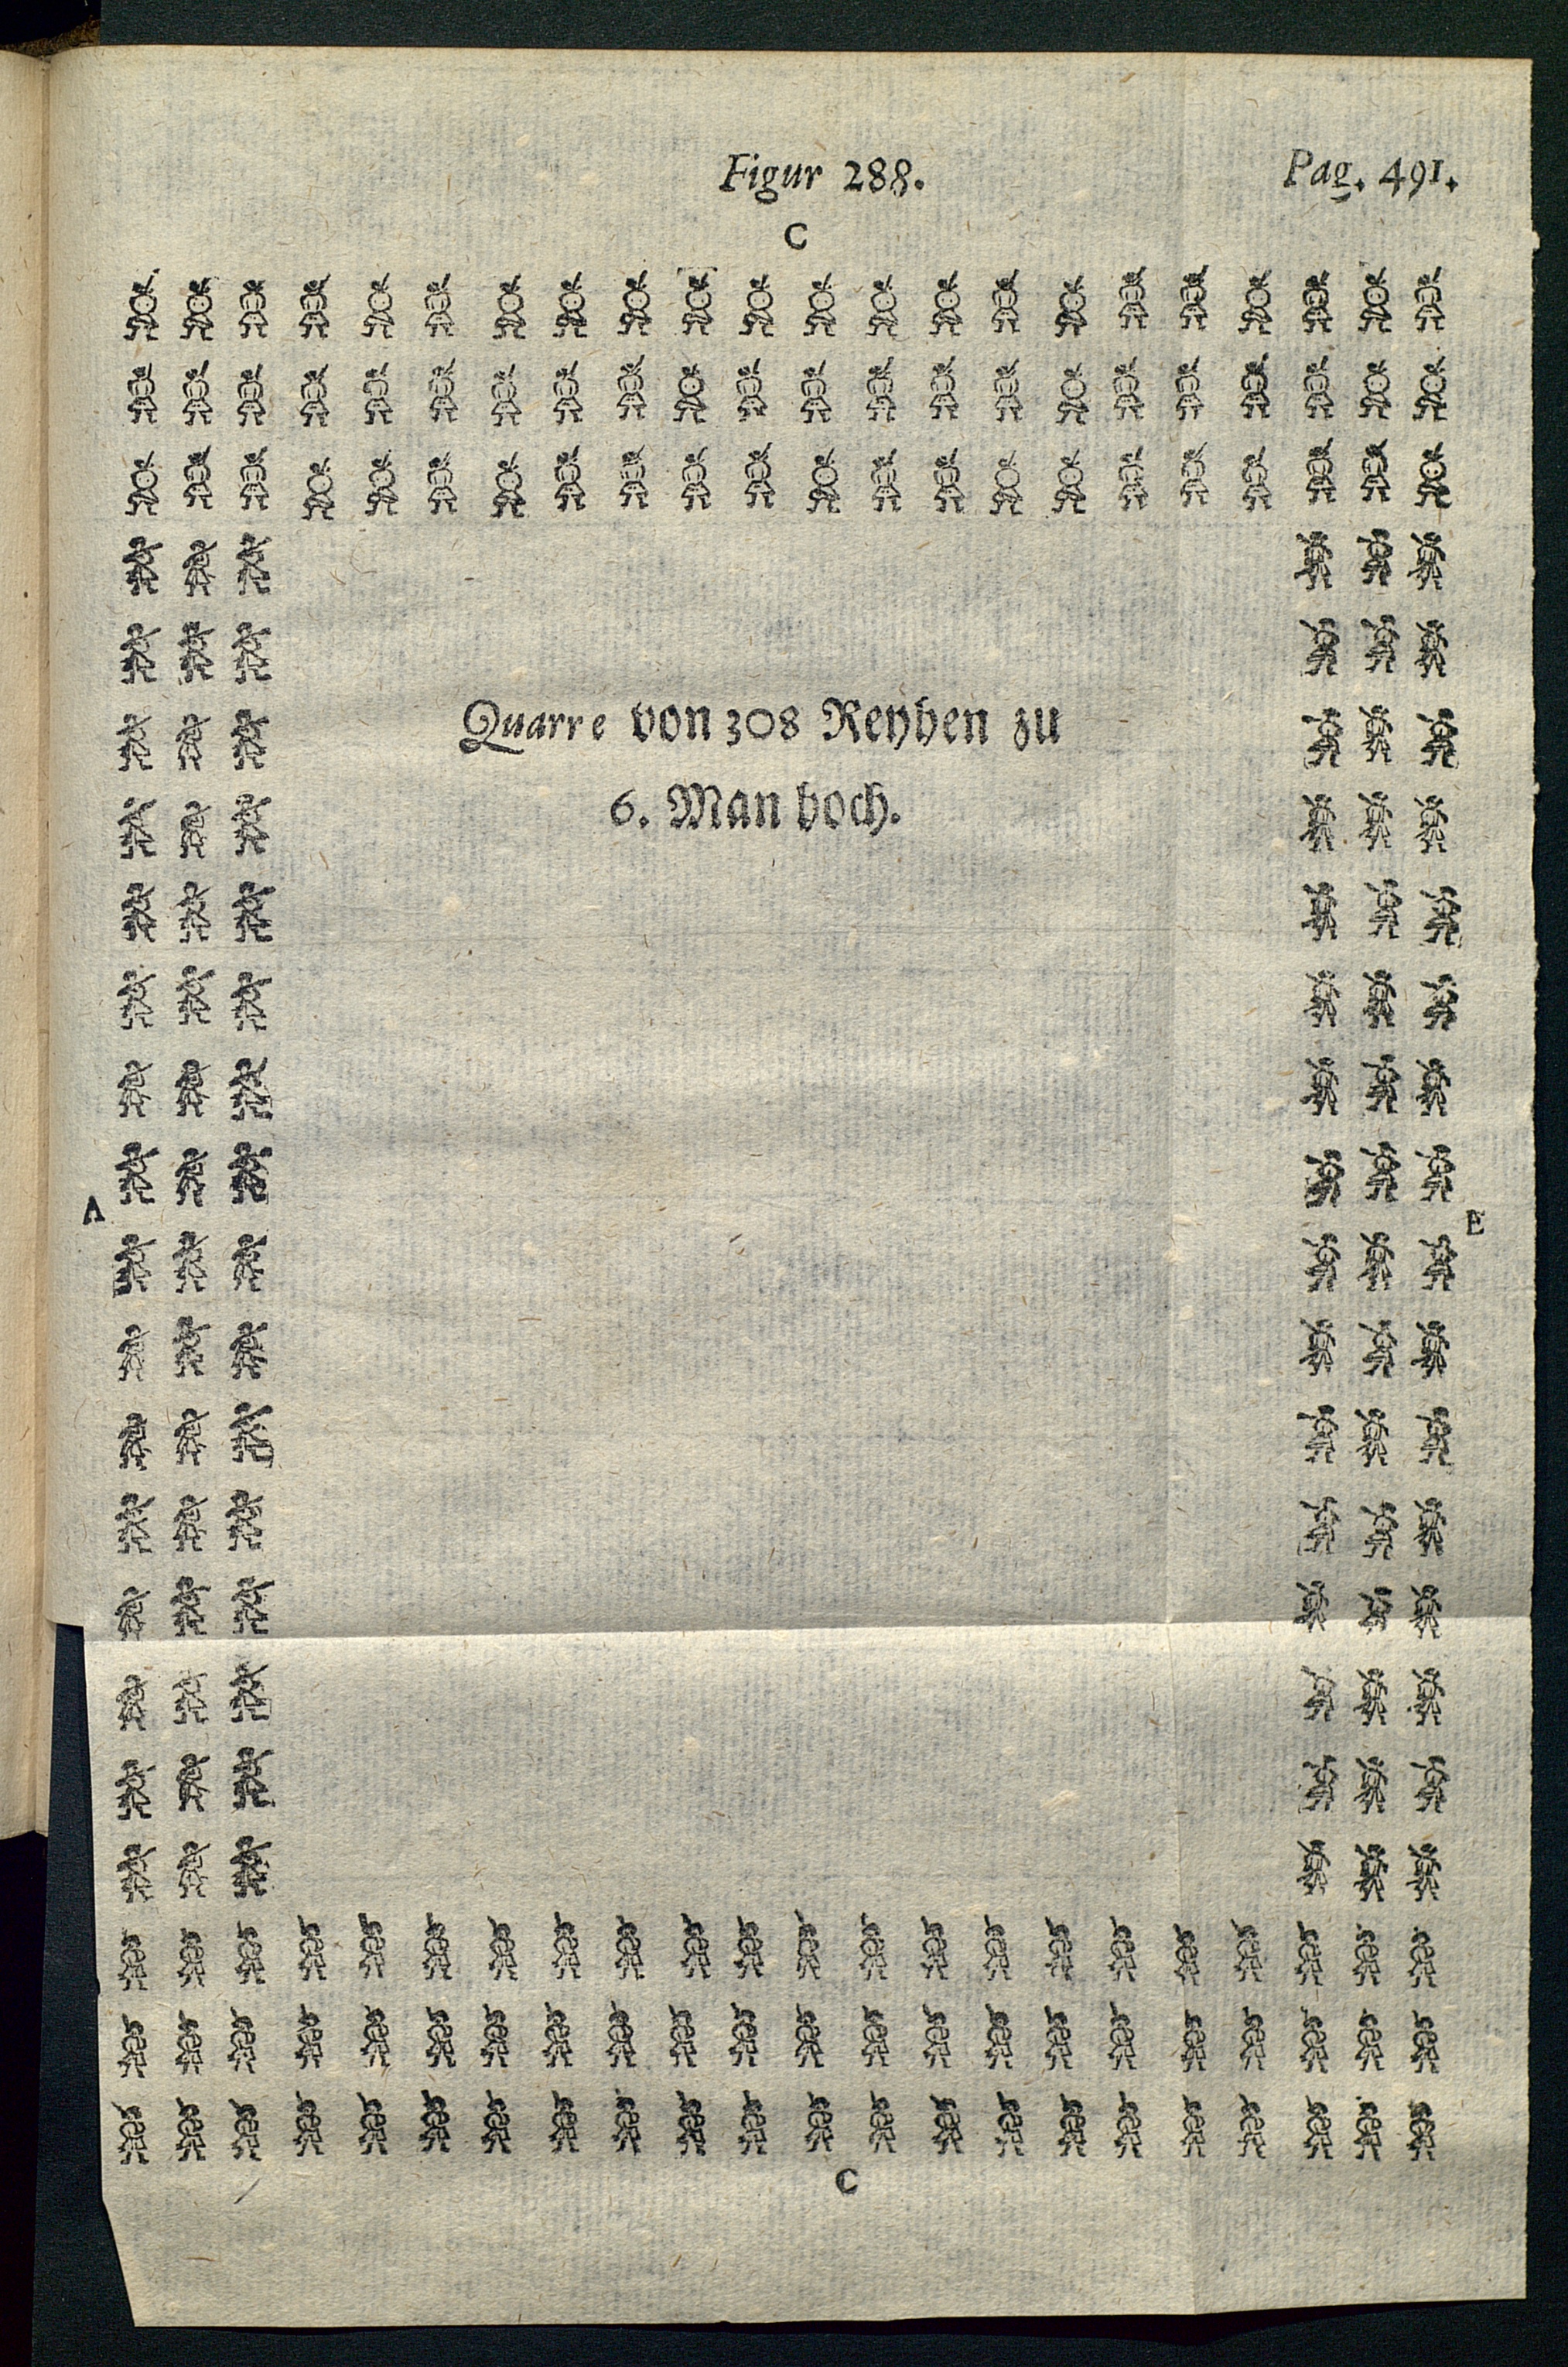 Figur 288.
Pag. 491.
C
Quarre von 308 Reyhen zu
6. Man hoch.
A
E
C